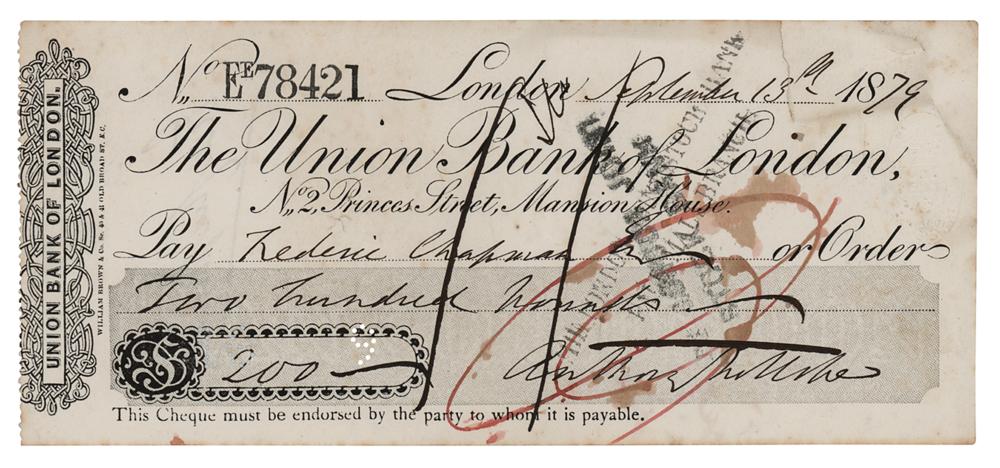 UNION BANK OF LONDON.
WILLIAM BROWN & Co. Sc. 40 & 41 OLD BROAD ST. E.C.
No. EE78421 London September 13th 1879
The Union Bank of London,
No. 2, Princes Street, Mansion House.
Pay Frederic Chapman or Order
Two hundred Pounds
£ 200
Anthony Trollope
This Cheque must be endorsed by the party to whom it is payable.